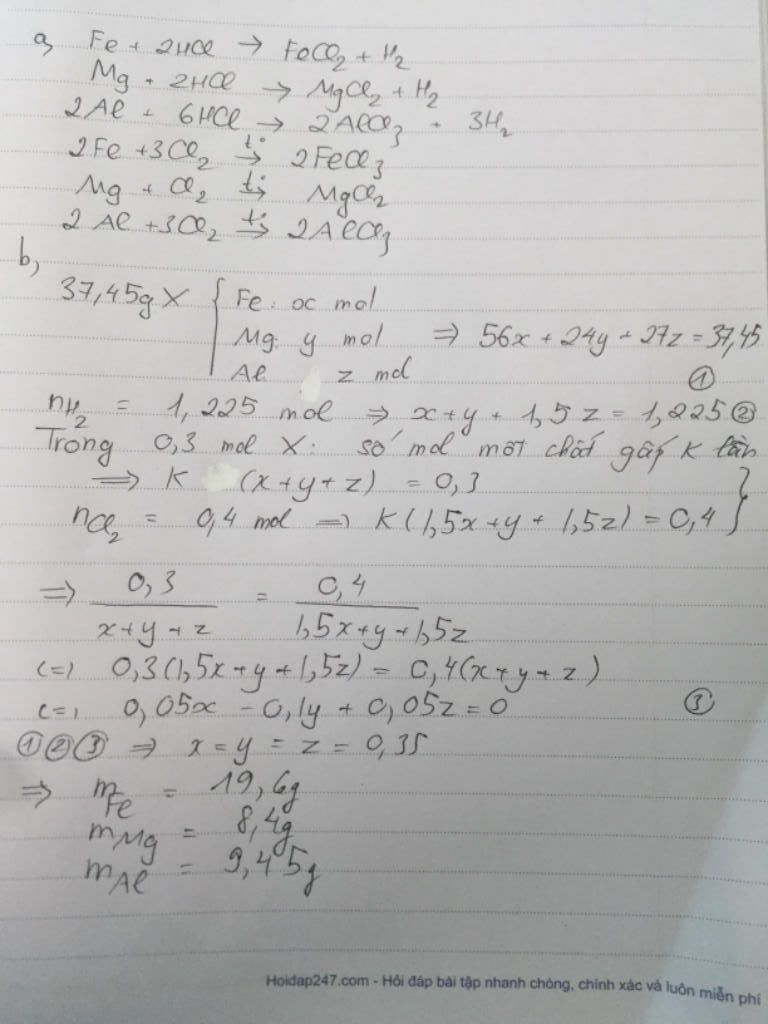 a, Fe + 2HCl → FeCl₂ + H₂
Mg + 2HCl → MgCl₂ + H₂
2Al + 6HCl → 2AlCl₃ + 3H₂
2Fe + 3Cl₂ t°→ 2FeCl₃
Mg + Cl₂ t°→ MgCl₂
2Al + 3Cl₂ t°→ 2AlCl₃
b,
37,45g X { Fe: x mol
Mg: y mol ⇒ 56x + 24y + 27z = 37,45
Al z mol ①
nH₂ = 1,225 mol ⇒ x + y + 1,5z = 1,225 ②
Trong 0,3 mol X: số mol mỗi chất gấp K lần
⇒ K (x + y + z) = 0,3
nCl₂ = 0,4 mol ⇒ K(1,5x + y + 1,5z) = 0,4 }
⇒ 0,3 / (x + y + z) = 0,4 / (1,5x + y + 1,5z)
<=> 0,3(1,5x + y + 1,5z) = 0,4(x + y + z)
<=> 0,05x - 0,1y + 0,05z = 0 ③
①②③ ⇒ x = y = z = 0,35
⇒ mFe = 19,6g
mMg = 8,4g
mAl = 9,45g
Hoidap247.com - Hỏi đáp bài tập nhanh chóng, chính xác và luôn miễn phí